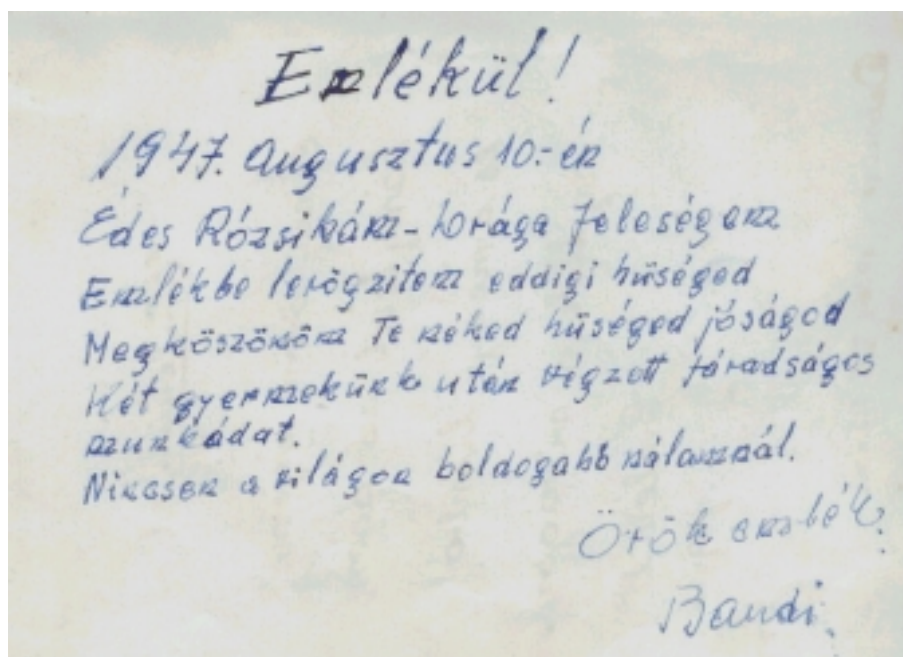 Emlékül!
1947. Augusztus 10.-én
Édes Rózsikám - Drága feleségem
Emlékbe lerögzitem eddigi hűséged
Megköszönöm Te néked hűséged jóságod
Két gyermekünk után végzett fáradságos
munkádat.
Nincsen a világon boldogabb nálamnál.
Örök emlék.
Bandi.